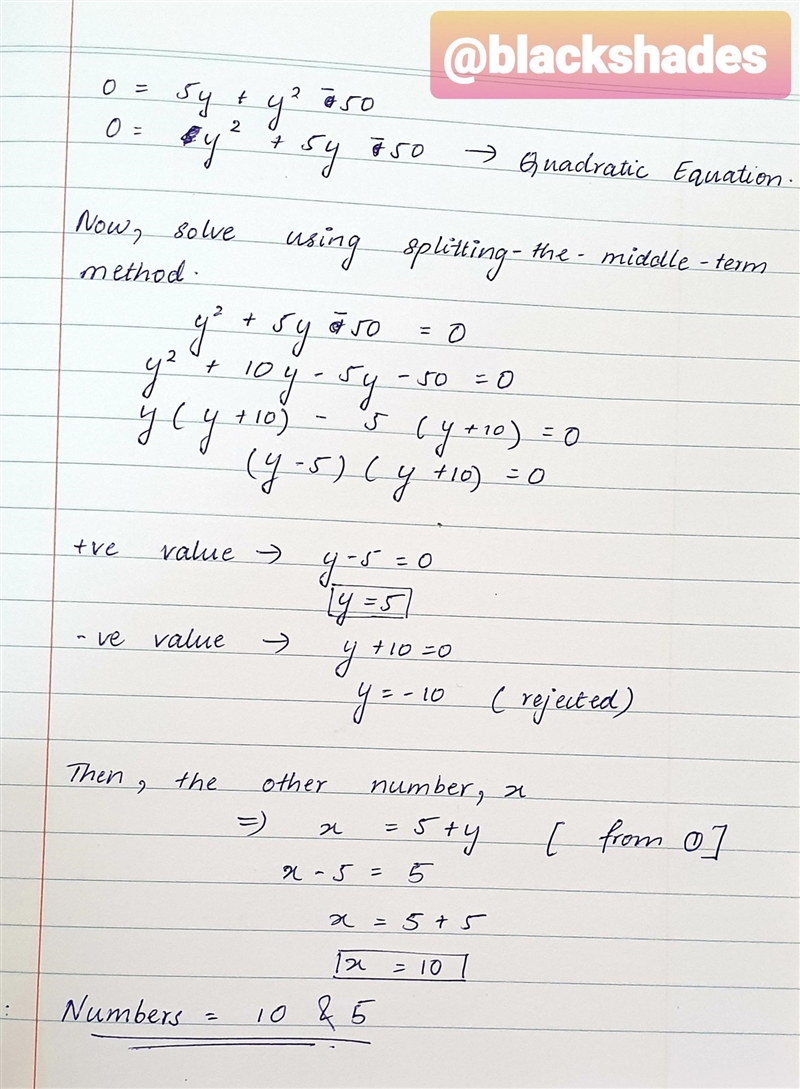 @blackshades
0 = 5y + y² - 50
0 = y² + 5y - 50 → Quadratic Equation.
Now, solve using splitting-the-middle-term
method.
y² + 5y - 50 = 0
y² + 10y - 5y - 50 = 0
y (y + 10) - 5 (y + 10) = 0
(y - 5) (y + 10) = 0
+ve value → y - 5 = 0
y = 5
-ve value → y + 10 = 0
y = -10 (rejected)
Then, the other number, x
⇒ x = 5 + y [from ①]
x - 5 = 5
x = 5 + 5
x = 10
Numbers = 10 & 5